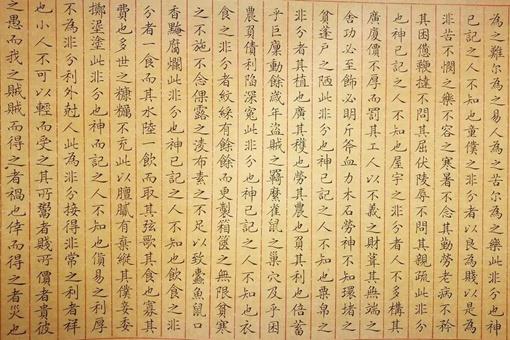 為之難尔為之易人為之苦尔為之樂此非分也神
已記之人不知也童僕之非分者以良為賤以是為
非苦不憫之樂不容之寒暑不念其勤勞老病不矜
其困憊鞭撻不問其屈伏陵辱不問其親疏此非分
也神已記之人不知也屋宇之非分者人不多構其
廣廈價不厚而罰其工人以不義之財葺其無端之
舍功必至飾必明斤斧血力木石勞神不知環堵之
貧蓬戶之陋此非分也神已記之人不知也粟帛之
非分者其植也廣其穫也勞其農也負其利也倍蓄
乎巨廩動餘歲年盜賊之羇縻雀鼠之巢穴及乎困
農負債利陷深寃此非分也神已記之人不知也衣
食之非分者紋綵有餘餘而更製箱篋之無限貧寒
之不施不念倮露之淩布素之不足以致蠹魚鼠口
香黦腐爛此非分也神已記之人不知也飲食之非
分者一食而其水陸一飲而取其弦歌其食也寡其
費也多世之糠糲不充此以膻膩有棄縱其僕妾委
擲埿塗此非分也神而記之人不知也債易之利厚
不為非分利外尅人此為非分接得非常之利者祥
也小人不可以輕而受之其所鬻者賤所價者貴彼
之愚而我之賊賊而得之者禍也倖而得之者災也